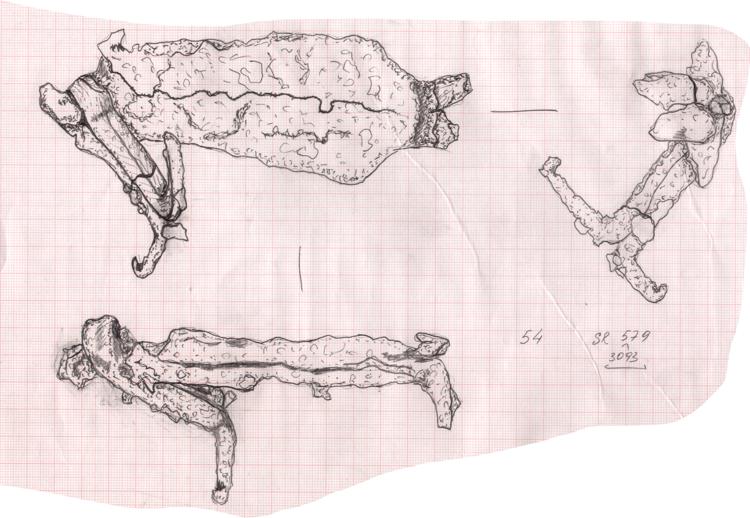 54 SR 579
3093